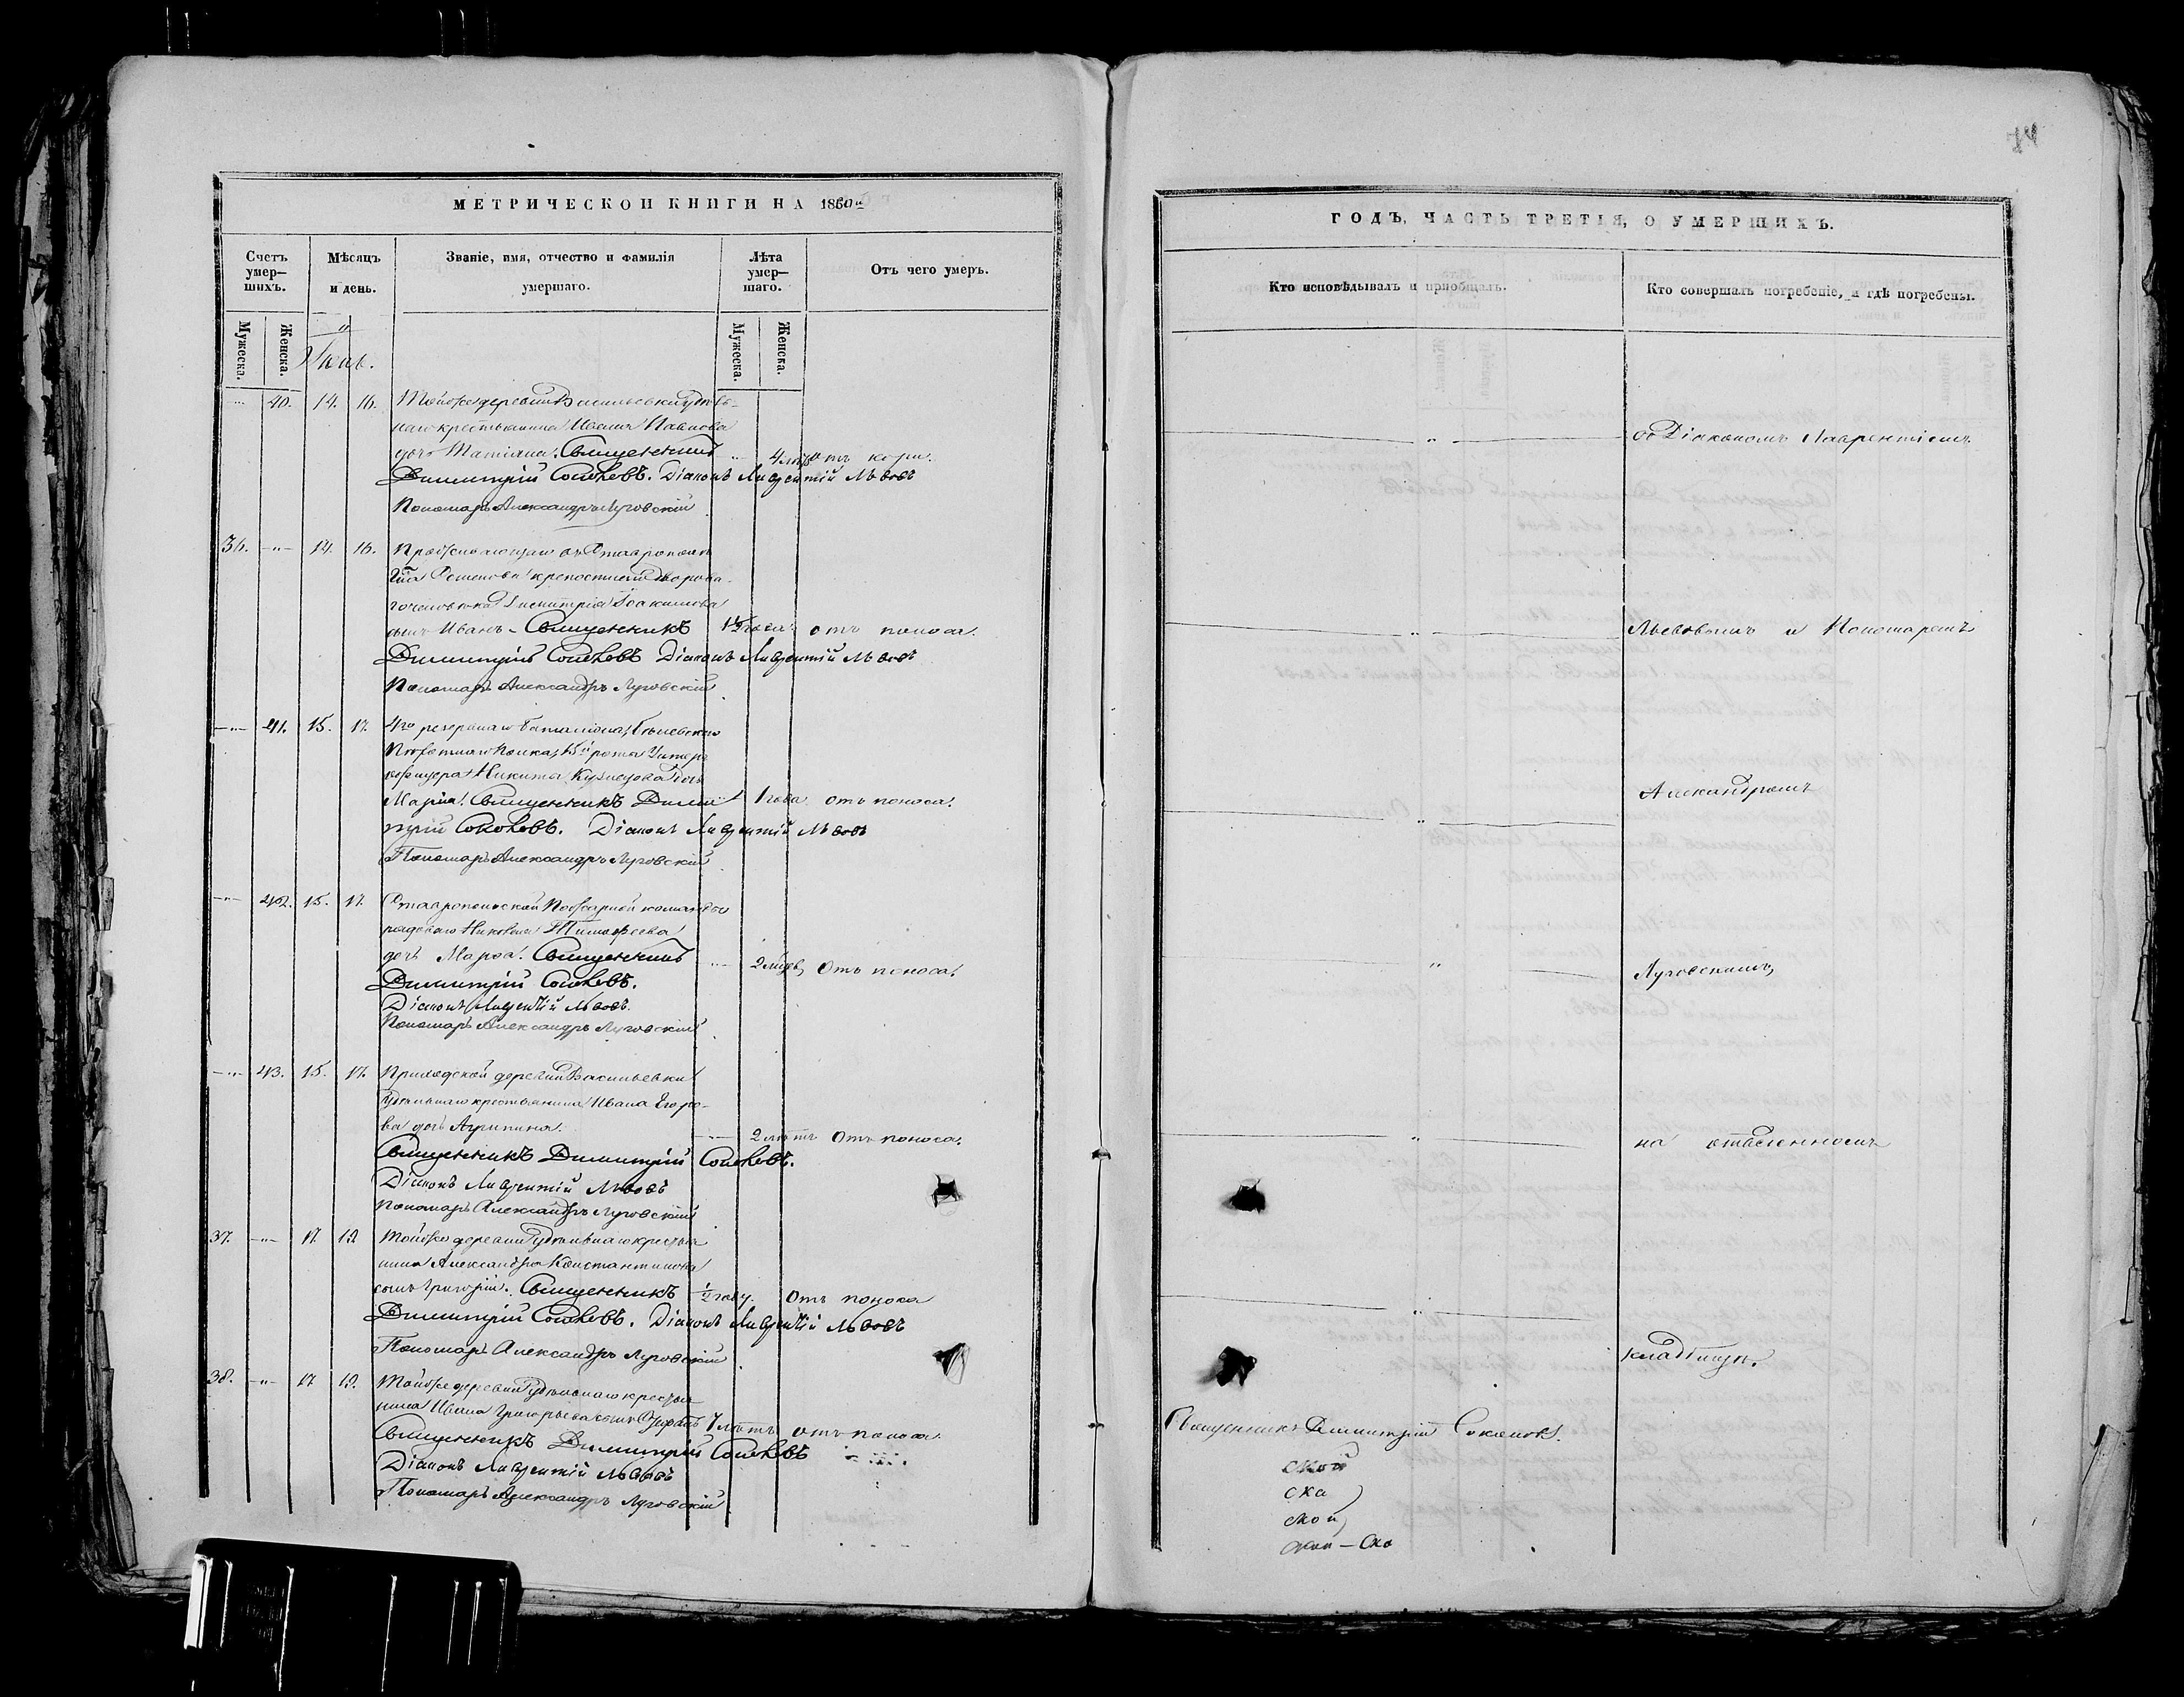 МЕТРИЧЕСКОЙ КНИГИ НА 1860й
Счетъ умер-шихъ.
Мѣсяцъ и день.
Званіе, имя, отчество и фамилія умершаго.
Лѣта умер-шаго.
Отъ чего умеръ.
Мужеска.
Женска.
Мужеска.
Женска.
40. 14. 16. Тойже деревни Васильевки Удѣль-
наго крестьянина Ивана Павлова
дочь Татіана. Священникъ 4 отъ кори.
Димитрій Соколовъ. Діаконъ Лаврентій Львовъ
Пономарь Александръ Луговскій
36. 14. 16. Проживающаго въ Ставрополѣ
крѣпостнаго дворова-
го человѣка Димитрія Іоакимова
сынъ Иванъ - Священникъ 1 1/2 года отъ поноса.
Димитрій Соколовъ Діаконъ Лаврентій Львовъ
Пономарь Александръ Луговскій
41. 15. 17. 4го резервнаго баталіона,
Пѣхотнаго Полка, роты Унтеръ
офицера Никиты Кузнецова дочь
Марія. Священникъ Дими- 1 года отъ поноса.
трій Соколовъ. Діаконъ Лаврентій Львовъ
Пономарь Александръ Луговскій
42. 15. 17. Ставропольской Пожарной команды
рядоваго Тимофеева
дочь Марфа. Священникъ 2 отъ поноса.
Димитрій Соколовъ.
Діаконъ Лаврентій Львовъ.
Пономарь Александръ Луговскій
43. 15. 17. Приходской деревни Васильевки
Удѣльнаго крестьянина Ивана Егоро-
ва дочь Агрипина. 2 лѣтъ отъ поноса.
Священникъ Димитрій Соколовъ.
Діаконъ Лаврентій Львовъ
Пономарь Александръ Луговскій
37. 17. 19. Тойже деревни Удѣльнаго крестья-
нина Александра Константинова
сынъ Григорій. Священникъ 1/2 году. отъ поноса
Димитрій Соколовъ. Діаконъ Лаврентій Львовъ
Пономарь Александръ Луговскій
38. 17 19. Тойже деревни Удѣльнаго крестья-
нина Ивана Григорьева сынъ 7 лѣтъ отъ поноса.
Священникъ Димитрій Соколовъ
Діаконъ Лаврентій Львовъ
Пономарь Александръ Луговскій
ГОДЪ, ЧАСТЬ ТРЕТІЯ, О УМЕРШИХЪ.
Кто исповѣдывалъ и пріобщалъ.
Кто совершалъ погребеніе, и гдѣ погребены.
съ Діакономъ Лаврентіемъ
Львовымъ и Пономаремъ
Александромъ
Луговскимъ,
на отведенномъ
кладбищѣ.
Священникъ Димитрій Соколовъ.
ской
ска
ской